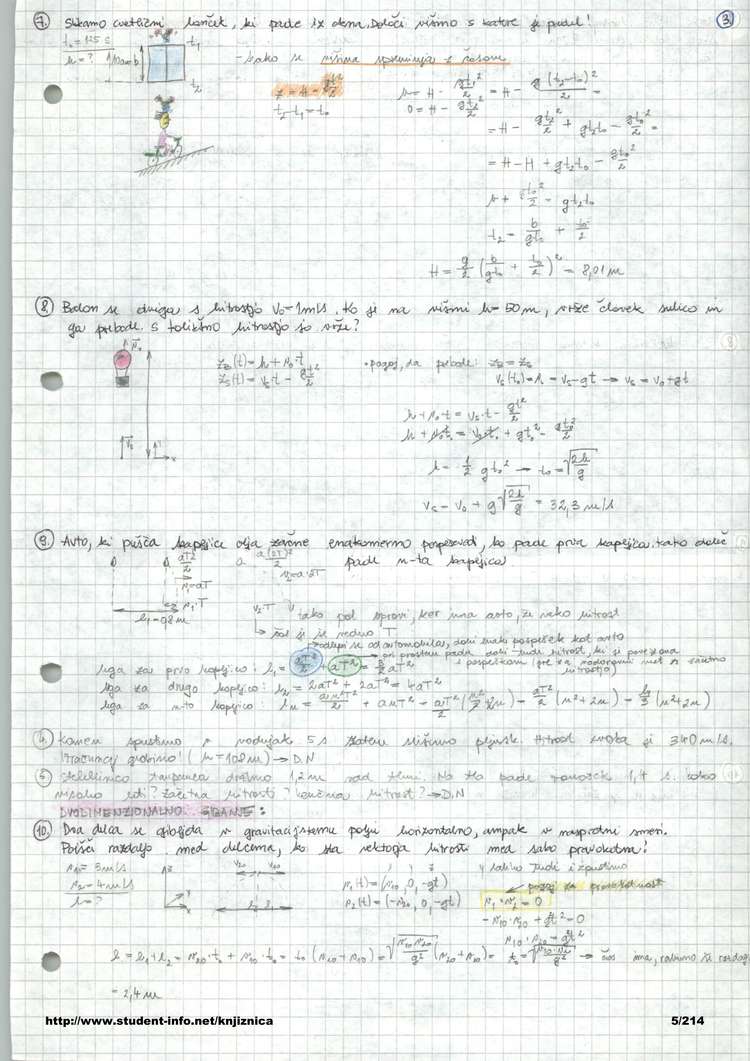 ③
7. Slikamo cvetlični lonček, ki pade iz okna. Določi višino s katere je padel!
t₀ = 125 s
h = ?
t₁
t₂
- kako se višina spreminja s časom
z = H - gt²/2
t₂ - t₁ = t₀
b = H - gt₁²/2 = H - g(t₂-t₀)²/2 =
0 = H - gt₂²/2
= H - gt₂²/2 + gt₂t₀ - gt₀²/2 =
= H - H + gt₂t₀ - gt₀²/2
b + gt₀²/2 = gt₂t₀
t₂ = b/gt₀ + t₀/2
H = g/2 (b/gt₀ + t₀/2)² = 8,01 m
8. Balon se dviga s hitrostjo v₀ = 1 m/s. Ko je na višini h = 50 m, vrže človek sulico in
ga prebode. S kolikšno hitrostjo jo vrže?
z_B(t) = h + v₀·t
z_S(t) = v_S·t - gt²/2
• pogoj, da prebode: z_B = z_S
v_S(t₀) = v₀ = v_S - gt → v_S = v₀ + gt
h + v₀·t = v_S·t - gt²/2
h + v₀t₀ = v₀t₀ + gt₀² - gt₀²/2
h = 1/2 gt₀² → t₀ = √(2h/g)
v_S = v₀ + g√(2h/g) = 32,3 m/s
9. Avto, ki pušča kapljice olja začne enakomerno pospeševati, ko pade prva kapljica. Kako daleč
pade n-ta kapljica
aT²/2
v₁ = aT
v₁·T
l₁ = 0,8 m
a(2T)²/2
v₂ = a·2T
v₂·T
tako pol sproti, ker ima avto, že neko hitrost
→ čas je še vedno T
odlepi se od avtomobila, dobi enaki pospešek kot avto
pri prostem padu dobi tudi hitrost, ki je povezana
s pospeškom
lega za prvo kapljico: l₁ = aT²/2 + aT² = 3/2 aT²
lega za drugo kapljico: l₂ = 2aT² + 2aT² = 4aT²
lega za n-to kapljico: lₙ = an²T²/2 + anT² = aT²/2 (n² + 2n) = aT²/2 (n² + 2n) = l₁/3 (n² + 2n)
4. Kamen spustimo v vodnjak. 5 s zatem slišimo pljusk. Hitrost zvoka je 340 m/s.
Izračunaj globino! (h = 108 m) → D.N
5. Steklenico zamaška držimo 1,2 m nad tlemi. Na tla pade zamašek 1,4 s. kako
visoko leti? začetna hitrost? končna hitrost? → D.N
DVODIMENZIONALNO GIBANJE:
10. Dva delca se gibljeta v gravitacijskemu polju horizontalno, ampak v nasprotni smeri.
Poišči razdaljo med delcema, ko sta vektorja hitrosti med sabo pravokotna!
v₁₀ = 3 m/s
v₂₀ = 4 m/s
l = ?
v₂₀ v₁₀
l₂ l₁
v₁(t) = (v₁₀, 0, -gt)
v₂(t) = (-v₂₀, 0, -gt)
y lahko tudi izpustimo
pogoj za pravokotnost
v₁·v₂ = 0
-v₁₀·v₂₀ + g²t² = 0
v₁₀·v₂₀ = g²t²
l = l₁ + l₂ = v₂₀·t₀ + v₁₀·t₀ = t₀ (v₂₀ + v₁₀) = √(v₁₀v₂₀/g²) (v₂₀ + v₁₀) =
t₀ = √(v₁₀·v₂₀/g²) → čas ima, rabimo še razdaljo
= 2,4 m
http://www.student-info.net/knjiznica
5/214